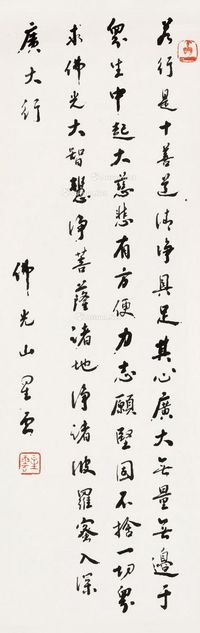 若行是十善道清淨具足其心廣大無量無邊于
眾生中起大慈悲有方便力志願堅固不捨一切眾
求佛光大智慧淨菩薩諸地淨諸波羅蜜入深
廣大行
佛光山星雲